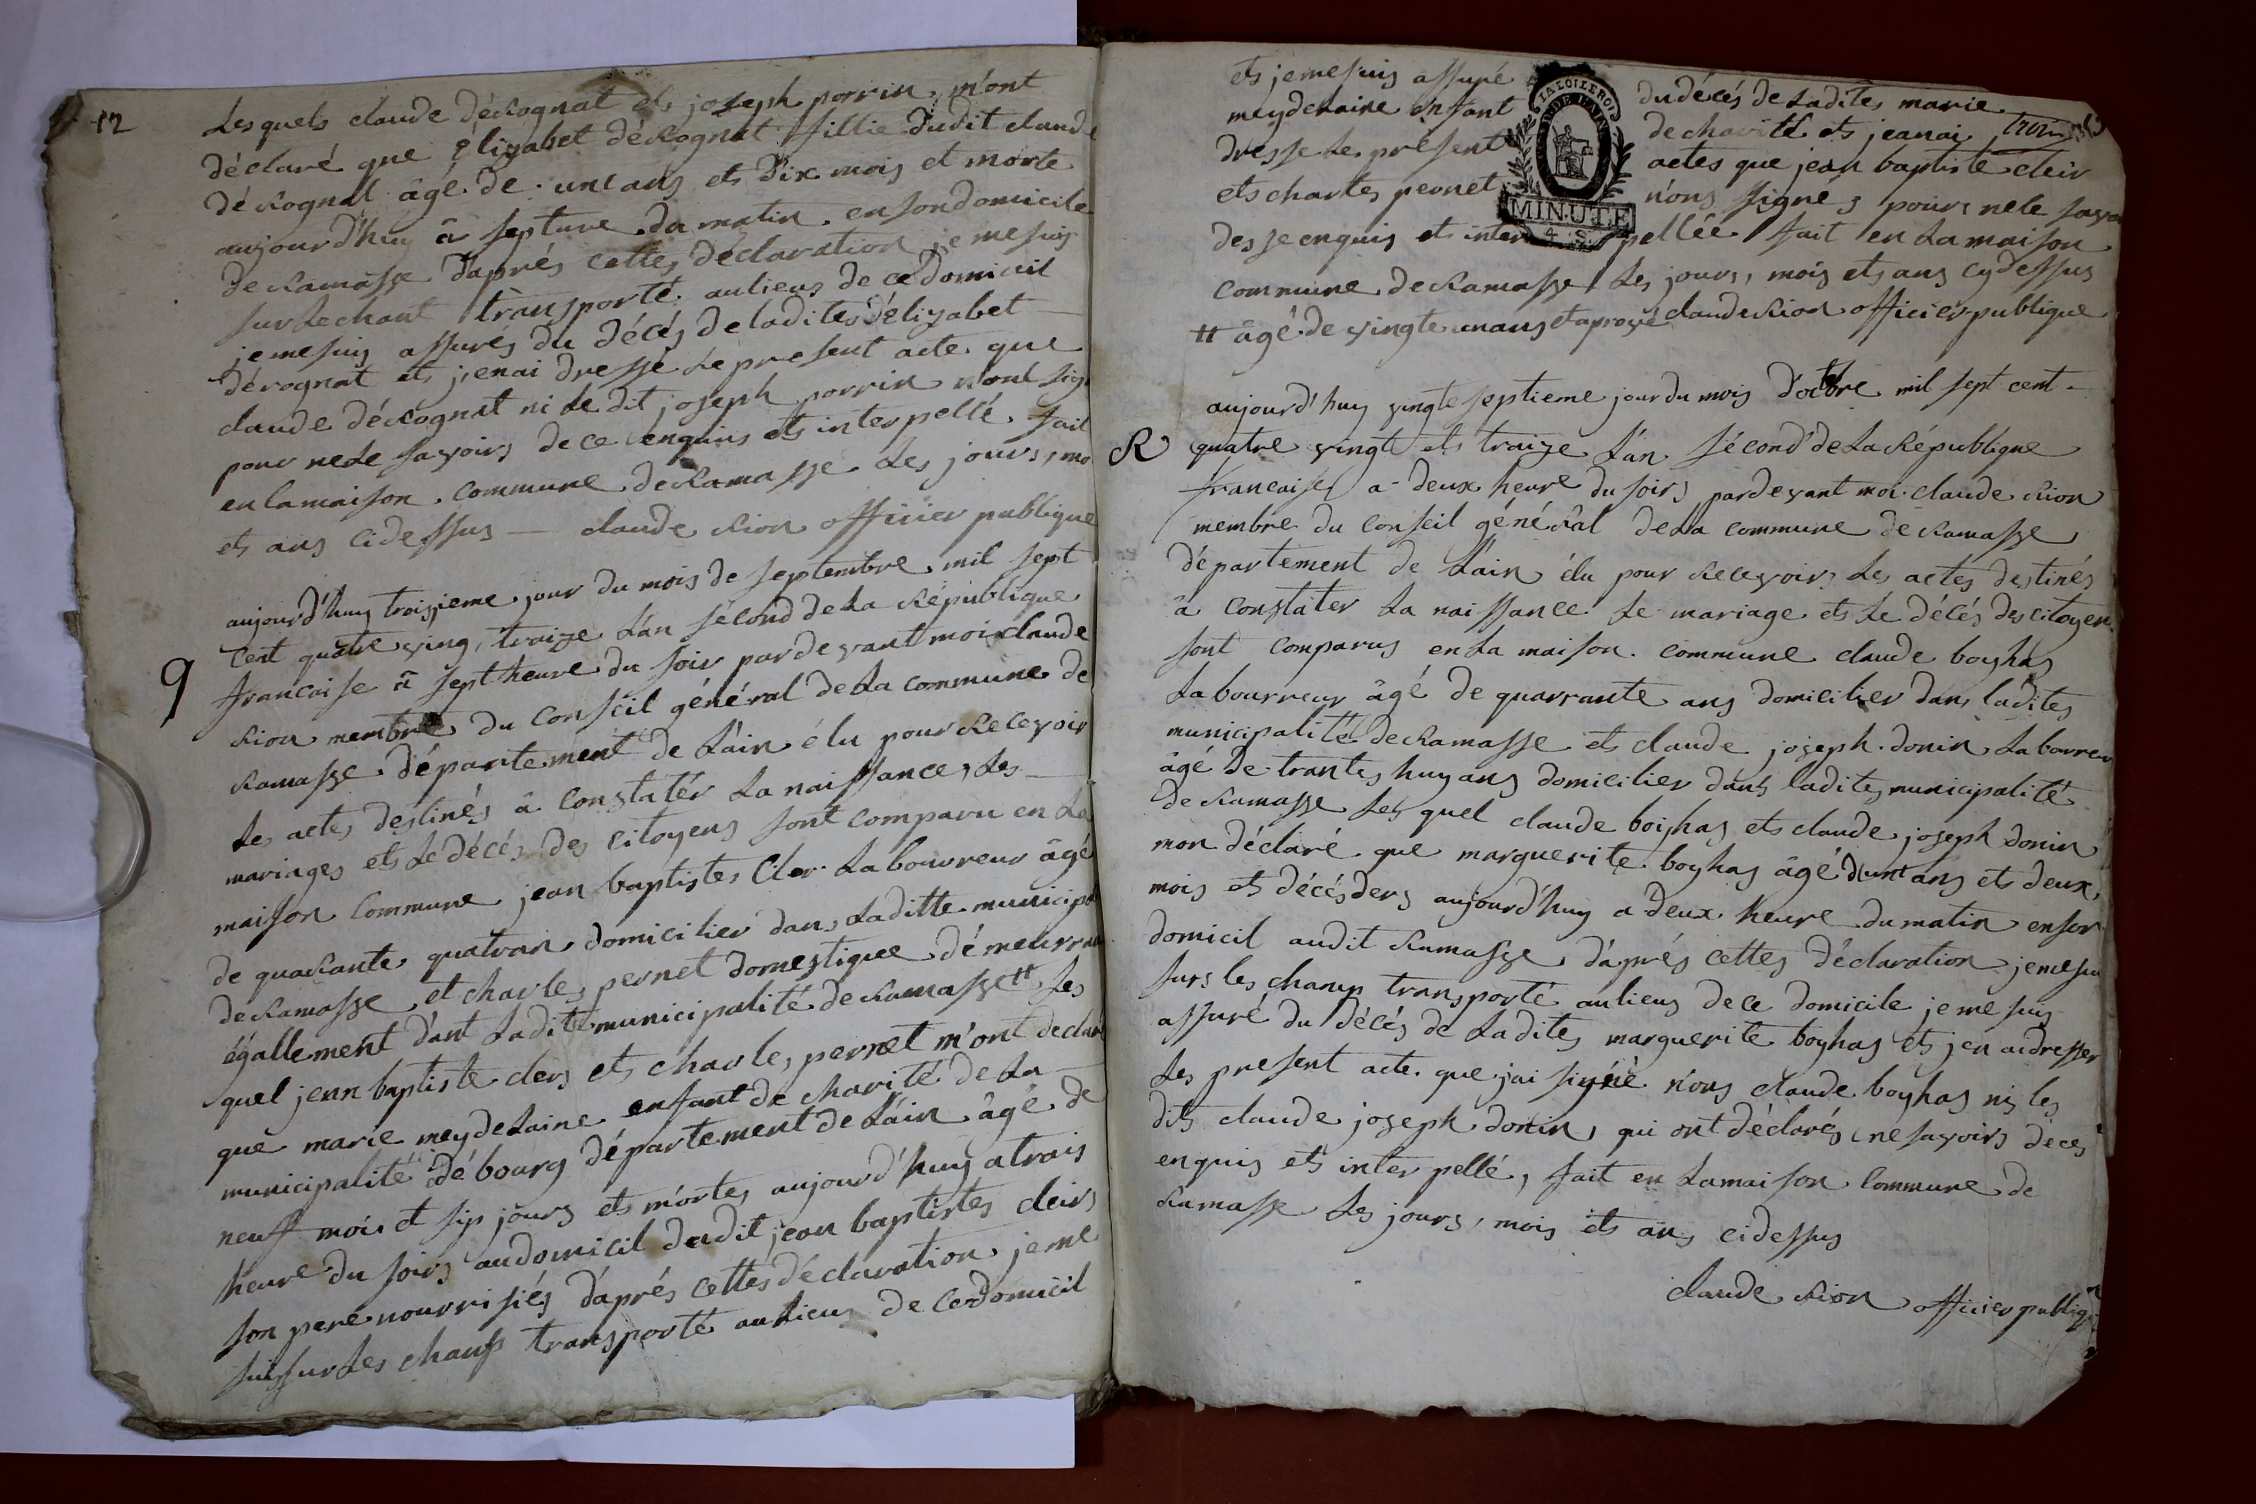 12
Les quels claude déRognat et joseph porrin m'ont
déclaré que élizabet déRognat fillie dudit claude
déRognat âgé de un ans et dix mois et morte
aujourd'huy à septure du matin en son domicile
de Ramasse d'aprés cette déclaration je me suis
sur le chant transporté au lieux de ce domicil
je me suis assurés du décés de ladites élizabet
dérognat et j'enai dressé Le present acte que
claude déRognat ni Le dit joseph porrin n'ont sig
pour ne Le savoirs de ce enquins et interpellé fait
en la maison commune de Ramasse Les jours, mo
et ans cidessus — claude Rion officier publique
aujourd'huy troisieme jour du mois de septembre mil sept
9
Cent quatre ving, traize L'an sécond de La République
francaise à sept heure du soir par devant moi claude
Rion membre du Conseil général de La commune de
Ramasse département de L'ain élu pour Recevoir
Les actes destinés à Constatér La naissance, Les
mariages et Le décés des citoyens sont comparu en La
maison Commune jean baptistes Cler Laboureur âgé
de quaRante quatran domicilier dans Laditte municipa
de Ramasse et charles pernet domestique démeurra
égallement dant Ladite municipalité de Ramasse tt Les
quel jean baptiste clers et charles pernet m'ont declaré
que marie meydelaine enfant de charité de La
municipalité dé bourg département de L'ain âgé de
neuf mois et sip jours et mortes aujourd'huy a trais
heure du soirs au domicil dudit jean baptistes cleirs
son pere nourrisiés d'aprés cettes déclaration je me
suis sur Les champs transporté au Lieux de ce domicil
et je me suis assuré du décés de Ladites marie
meydelaine enfant de charité et jeanai
dresse Le présent actes que jean baptiste cleir
et charles pernet n'ons signés pours ne le sava
LA LOI LE ROI
MINUTE
4 S
des se enquis et interpellée fait en La maison
commune de Ramasse Les jours, mois et ans cydessus
tt âgé de vingte unans et aprové claude Rion officier publique
aujourd'huy vingte septieme jour du mois d'octbre mil sept cent
R quatre vingt et traize L'an sécond de La République
francaise a deux heure du soirs pardevant moi claude Rion
membre du Conseil général de La commune de Ramasse
département de L'ain élu pour Recevoirs Les actés destinés
à constater La naissance Le mariage et Le décés des citoyen
sont comparus en La maison commune claude boyhas
Labourreur âgé de quarrante ans domicilier dans ladites
municipalitté de Ramasse et claude joseph donin Labourreu
âgé de trantes huyans domicilier dans ladites municipalité
de Ramasse Les quel claude boihas et claude joseph donin
mon déclaré que marguerite boyhas âgé d'unt ans et deux
mois et décésders aujourd'huy a deux heure du matin en son
domicil audit Ramasse d'aprés cettes déclaration je me sui
surs les champ transporté au lieux de ce domicile je me suis
assuré du décés de Ladites marguerite boyhas et j'en ai dresser
Les present acte que j'ai signéé n'ons claude boyhas ni les
dits claude joseph donin qui ont déclarés ne savoirs de ces
enquis et interpellé, fait en La maison Commune de
Ramasse Les jours, mois et ans cidessus
claude Rion officier publiq